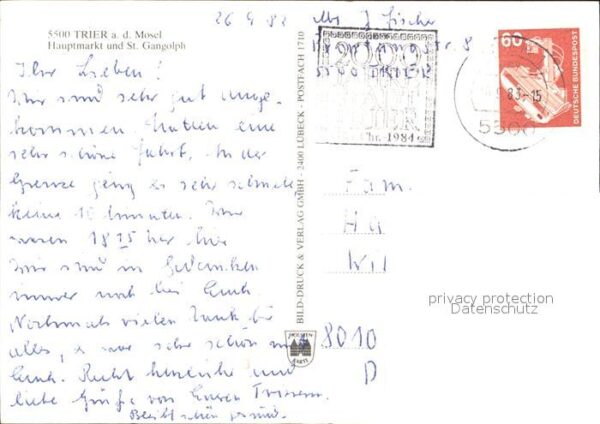 5500 TRIER a. d. Mosel
Hauptmarkt und St. Gangolph
Ihr Lieben!
Wir sind sehr gut ange-
kommen hatten eine
sehr schöne Fahrt. An der
Grenze ging es sehr schnell,
keine 10 Minuten. Wir
waren 18 15 hier
Wir sind in Gedanken
immer noch bei Euch
Nochmals vielen Dank für
alles, es war sehr schön mit
Euch. Recht herzliche und
liebe Grüße von Euren Trierern.
Bleibt schön gesund.
BILD-DRUCK & VERLAG GMBH - 2400 LÜBECK - POSTFACH 1710
26 9 83
Abs J. Fischer
8
5500 TRIER
2000
TRIER
Chr. 1984
5500
9.83-15
60
DEUTSCHE BUNDESPOST
Fam.
Ha
Wil
8010
D
privacy protection
Datenschutz